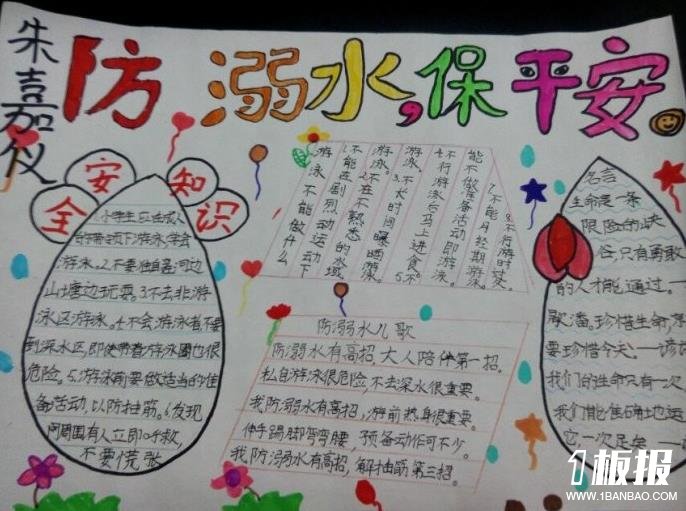 朱嘉仪
防溺水,保平安。
安全知识
1.小学生应在成人
带领下游泳,学会
游泳。2.不要独自在河边
山塘边玩耍。3.不去非游
泳区游泳。4.不会游泳者不要
到深水区,即使带着游泳圈也很
危险。5.游泳前要做适当的准
备活动,以防抽筋。6.发现
周围有人立即呼救,
不要慌张
游泳不能做什么
1.不能在剧烈运动下
游泳。2.不在不熟悉的水域
游泳。3.不长时间曝晒游泳。
4.不行游泳后马上进食。5.不
能不做准备活动即游泳。
7.不能月经期游泳。
8.不行游时焚
防溺水儿歌
防溺水有高招,大人陪伴第一招。
私自游泳很危险,不去深水很重要。
我防溺水有高招,游前热身很重要。
伸手踢脚弯弯腰,预备动作可不少。
我防溺水有高招,解抽筋第三招。
名言
生命是一条
限险的峡
谷,只有勇敢
的人才能通过。一
歇潘,珍惜生命,
要珍惜今天。一谚
我们的生命只有一次
我们能准确地运
它,一次足矣
1板报
WWW.1BANBAO.COM